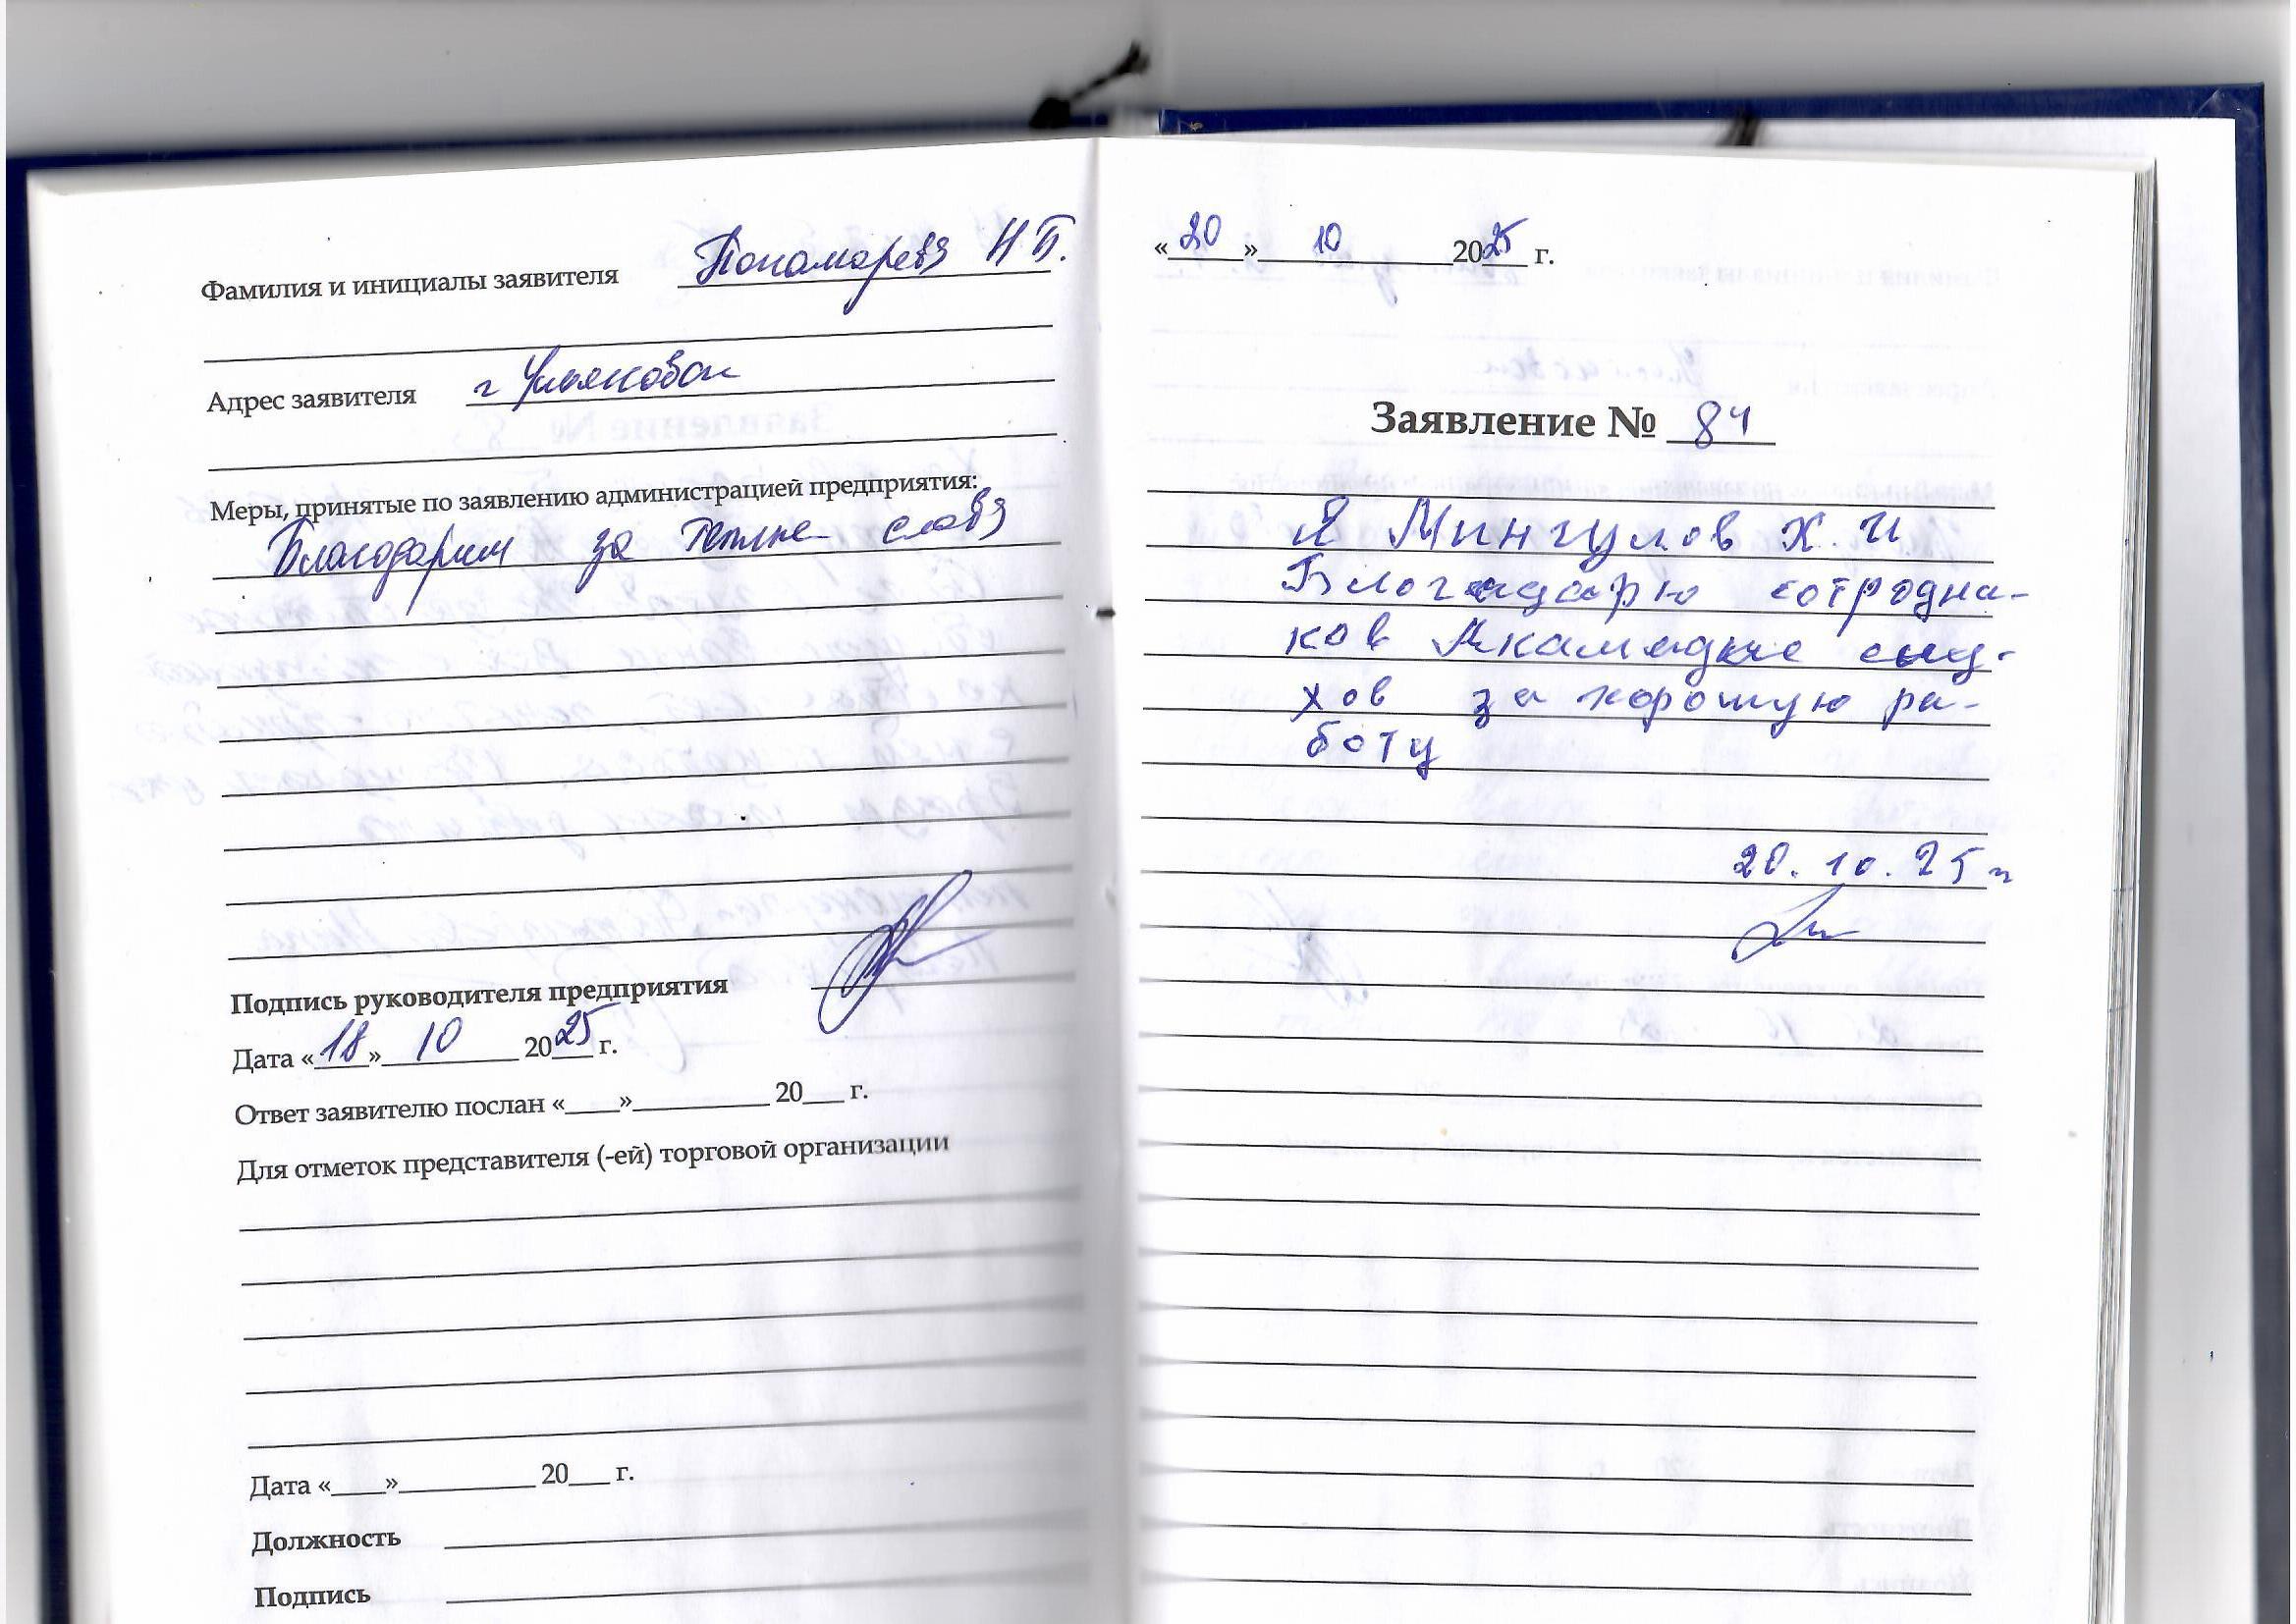 Фамилия и инициалы заявителя Пономарева Н Б.
Адрес заявителя г Ульяновск
Меры, принятые по заявлению администрацией предприятия:
Благодарим за теплые слова
Подпись руководителя предприятия
Дата «18» 10 2025 г.
Ответ заявителю послан «____»__________ 20___ г.
Для отметок представителя (-ей) торговой организации
Дата «____»__________ 20___ г.
Должность
Подпись
«20» 10 2025 г.
Заявление № 84
Я Мингулов Х. И
Блогадарю сотродни-
ков Акамедие слу-
хов за хорошую ра-
боту
20. 10. 25 г